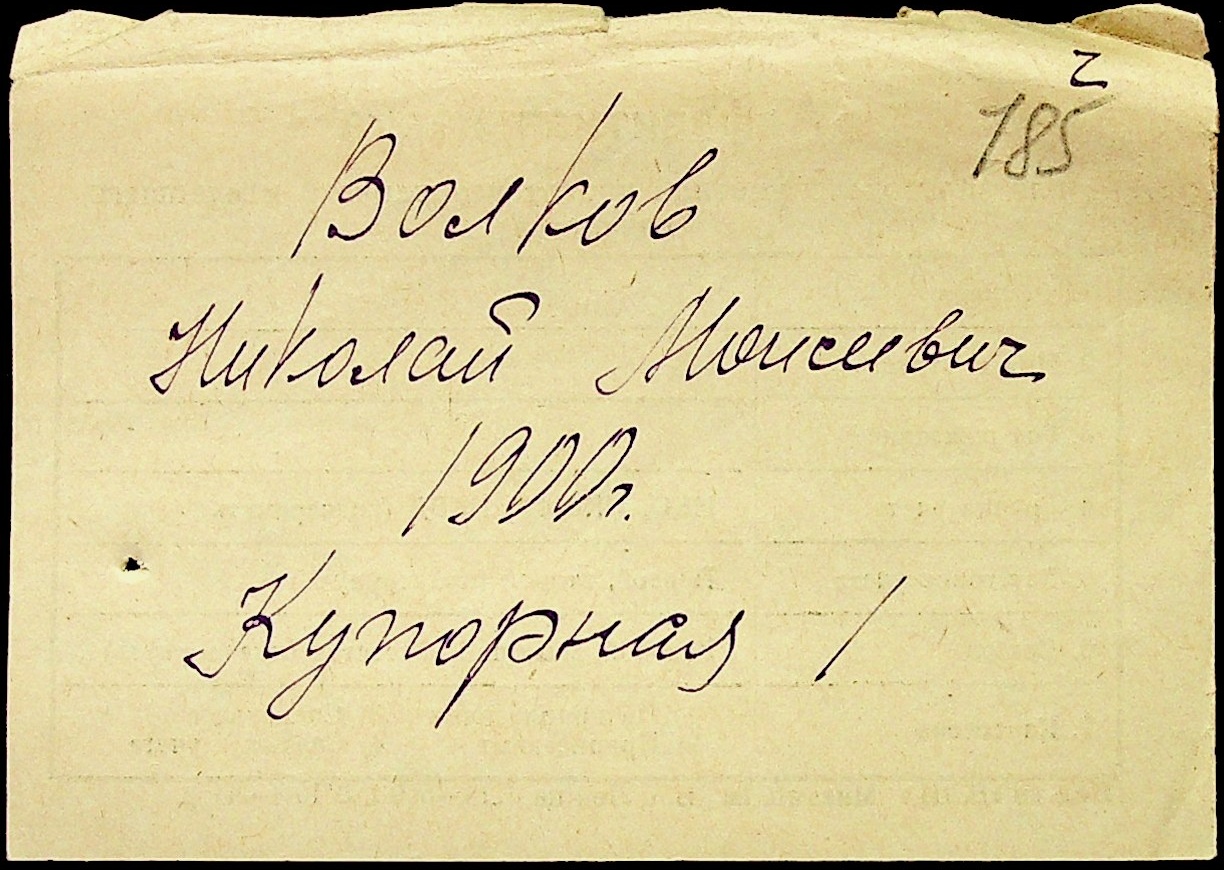 185
Волков
Николай Моисеевич
1900г.
Купорная 1